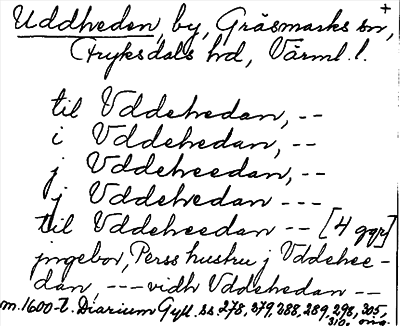 Uddheden, by, Gräsmarks sn, +
Fryksdals hd, Värml. l.
til Vddehedan, --
i Vddehedan, --
j Vddeheedan, --
j Vddehedan ---
til Vddeheedan -- [4 ggr]
jngebor, Perss hustru j Vddehee-
dan, --- vidh Vddehedan --
m. 1600-t. Diarium Gyll. ss 278, 279, 288, 289, 298, 305,
310.